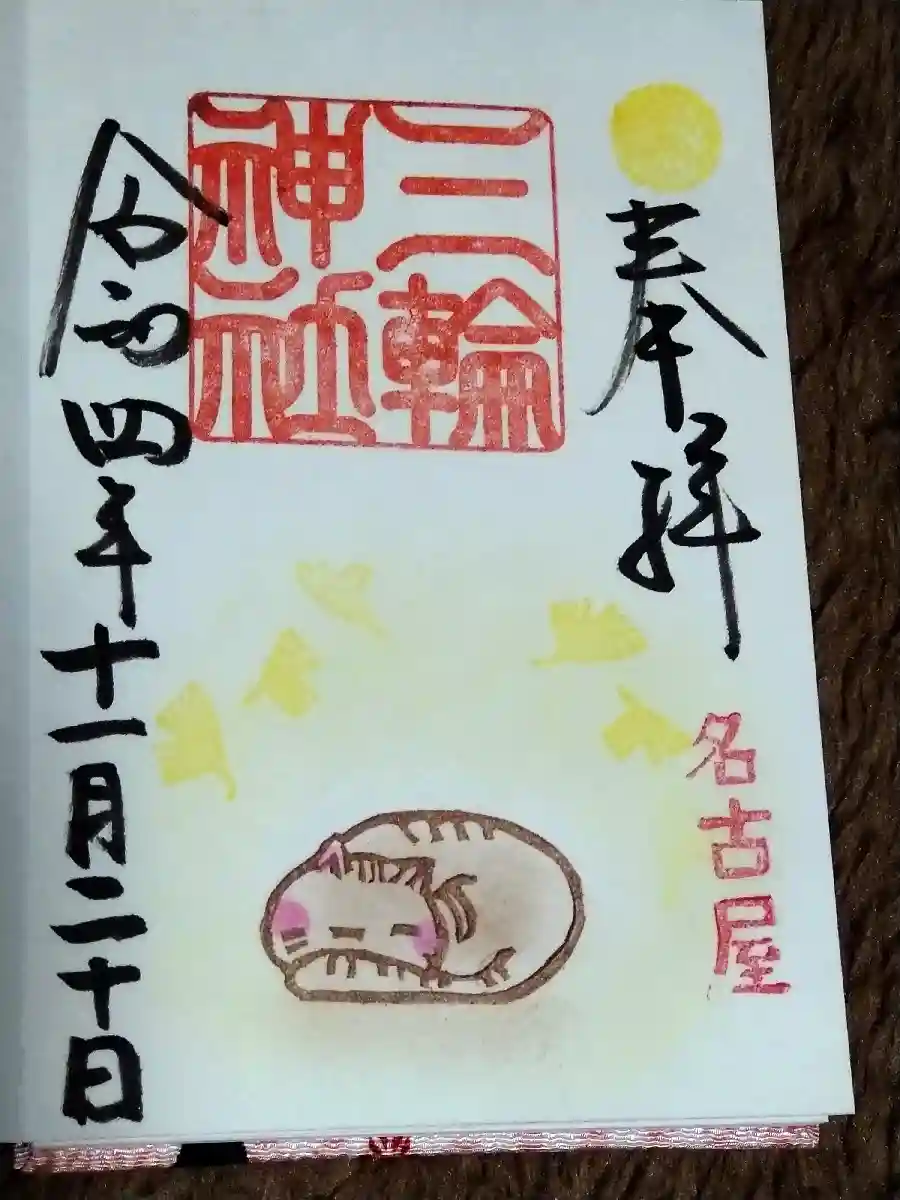 奉拝
名古屋
三輪
神社
令和四年十一月二十日